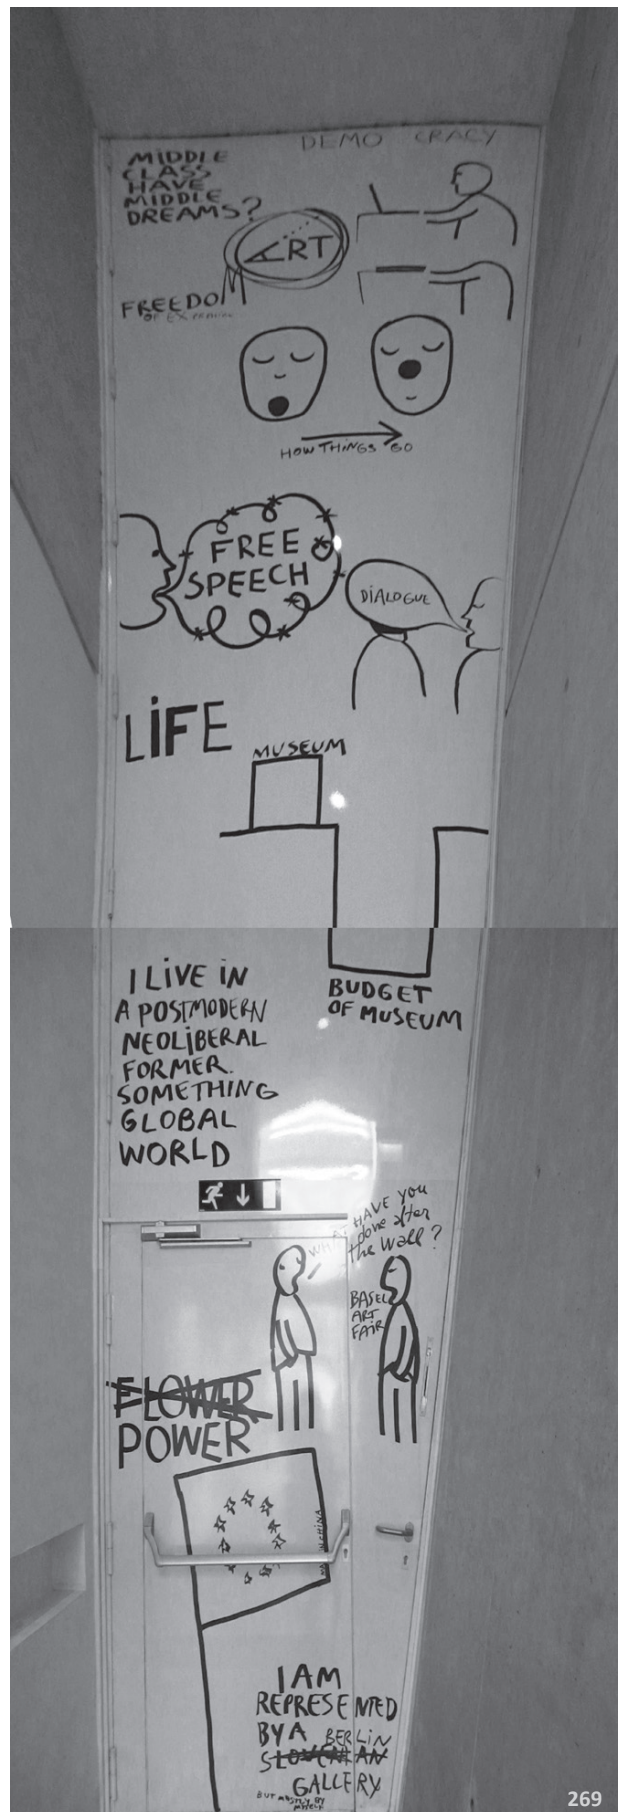 DEMO CRACY
MIDDLE
CLASS
HAVE
MIDDLE
DREAMS?
ART
FREEDOM
OF EX
HOW THINGS GO
FREE
SPEECH
DIALOGUE
LIFE
MUSEUM
BUDGET
OF MUSEUM
I LIVE IN
A POSTMODERN
NEOLIBERAL
FORMER.
SOMETHING
GLOBAL
WORLD
WHAT HAVE YOU
done after
the Wall?
BASEL
ART
FAIR
FLOWER
POWER
MADE IN CHINA
I AM
REPRESENTED
BY A BERLIN
SLOVENIAN
GALLERY
BUT MOSTLY BY
MYSELF
269